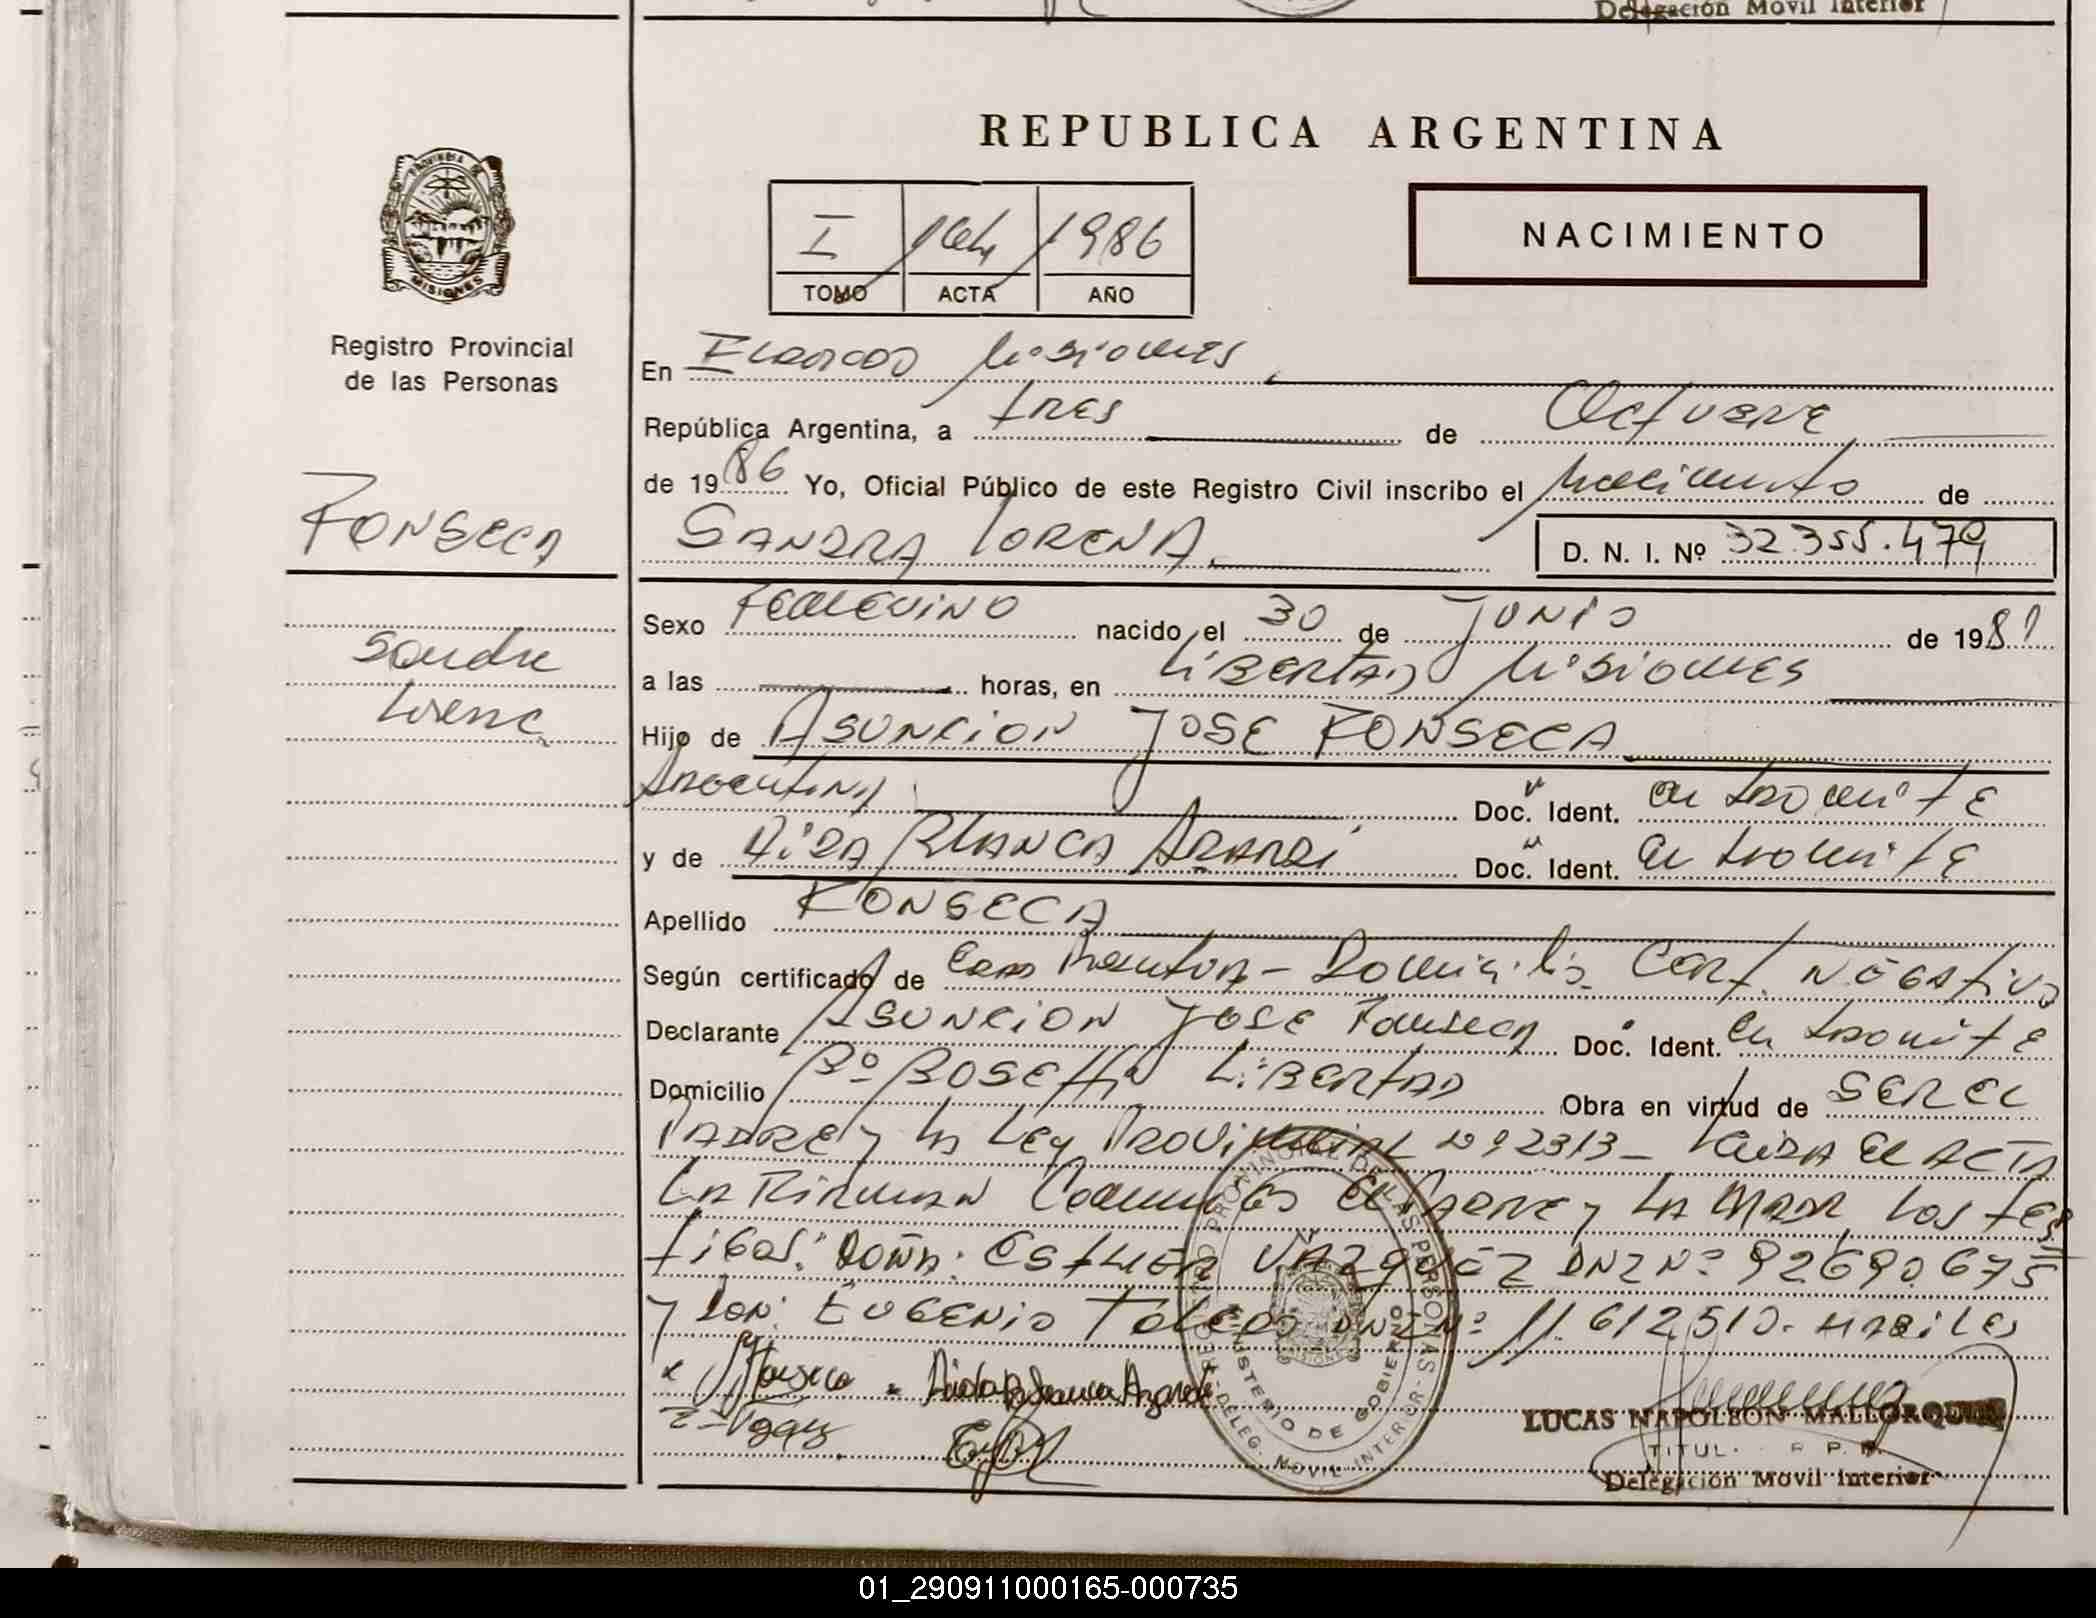 Delegación Movil Interior
REPUBLICA ARGENTINA
PROVINCIA DE
MISIONES
I 1986
TOMO ACTA AÑO
NACIMIENTO
Registro Provincial
de las Personas
En Eldorado Misiones
República Argentina, a tres de Octubre
de 1986 Yo, Oficial Público de este Registro Civil inscribo el Nacimiento de
FONSECA
SANDRA LORENA. D. N. I. Nº 32.355.479
Sexo Femenino nacido el 30 de Junio de 1981
Sandra
Lorena
a las horas, en Libertad Misiones
Hijo de Asuncion Jose FONSECA
Argentina Doc. Ident. en tramite
y de Aida Blanca Doc. Ident. en tramite
Apellido FONSECA
Según certificado de Domicilio Cert. Negativo
Declarante Asuncion Jose Fonseca Doc. Ident. en tramite
Domicilio Bº Libertad Obra en virtud de ser el
Padre y la Ley Provincial Nº 2313 - Leida el Acta
la Firman Conmigo el Padre y la Madr. los tes
tigos: Doña: Esther Vazquez DNI Nº 92690.675
y Don: Eugenio Toledo DNI Nº 11.612510. Habiles
Fonseca Aida Blanca
REGISTRO PROVINCIAL DE LAS PERSONAS
MINISTERIO DE GOBIERNO
DELEG. MOVIL INTERIOR
MISIONES
LUCAS NAPOLEON MALLORQUIN
TITUL. R. P. P.
Delegación Movil Interior
01_290911000165-000735